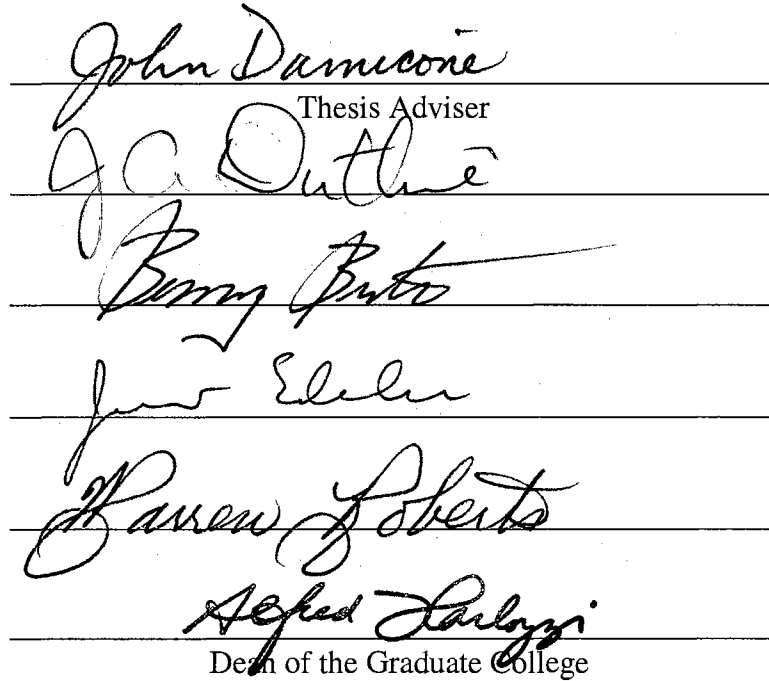 John Damicone
Thesis Adviser
J A Duthie
Benny Bruton
Edelson
Warren Roberts
Alfred Carlozzi
Dean of the Graduate College